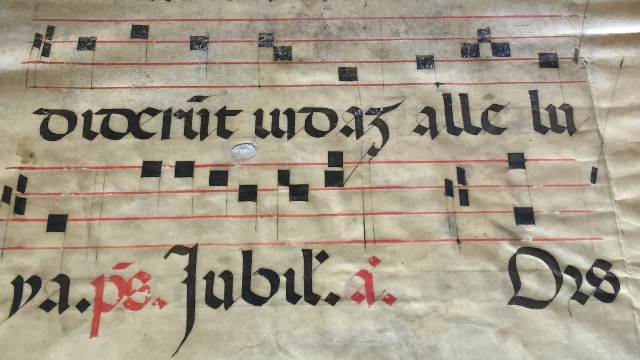 diderūt uidaʒ alle lu
ya. p̄s. Jubil'. a. Ors